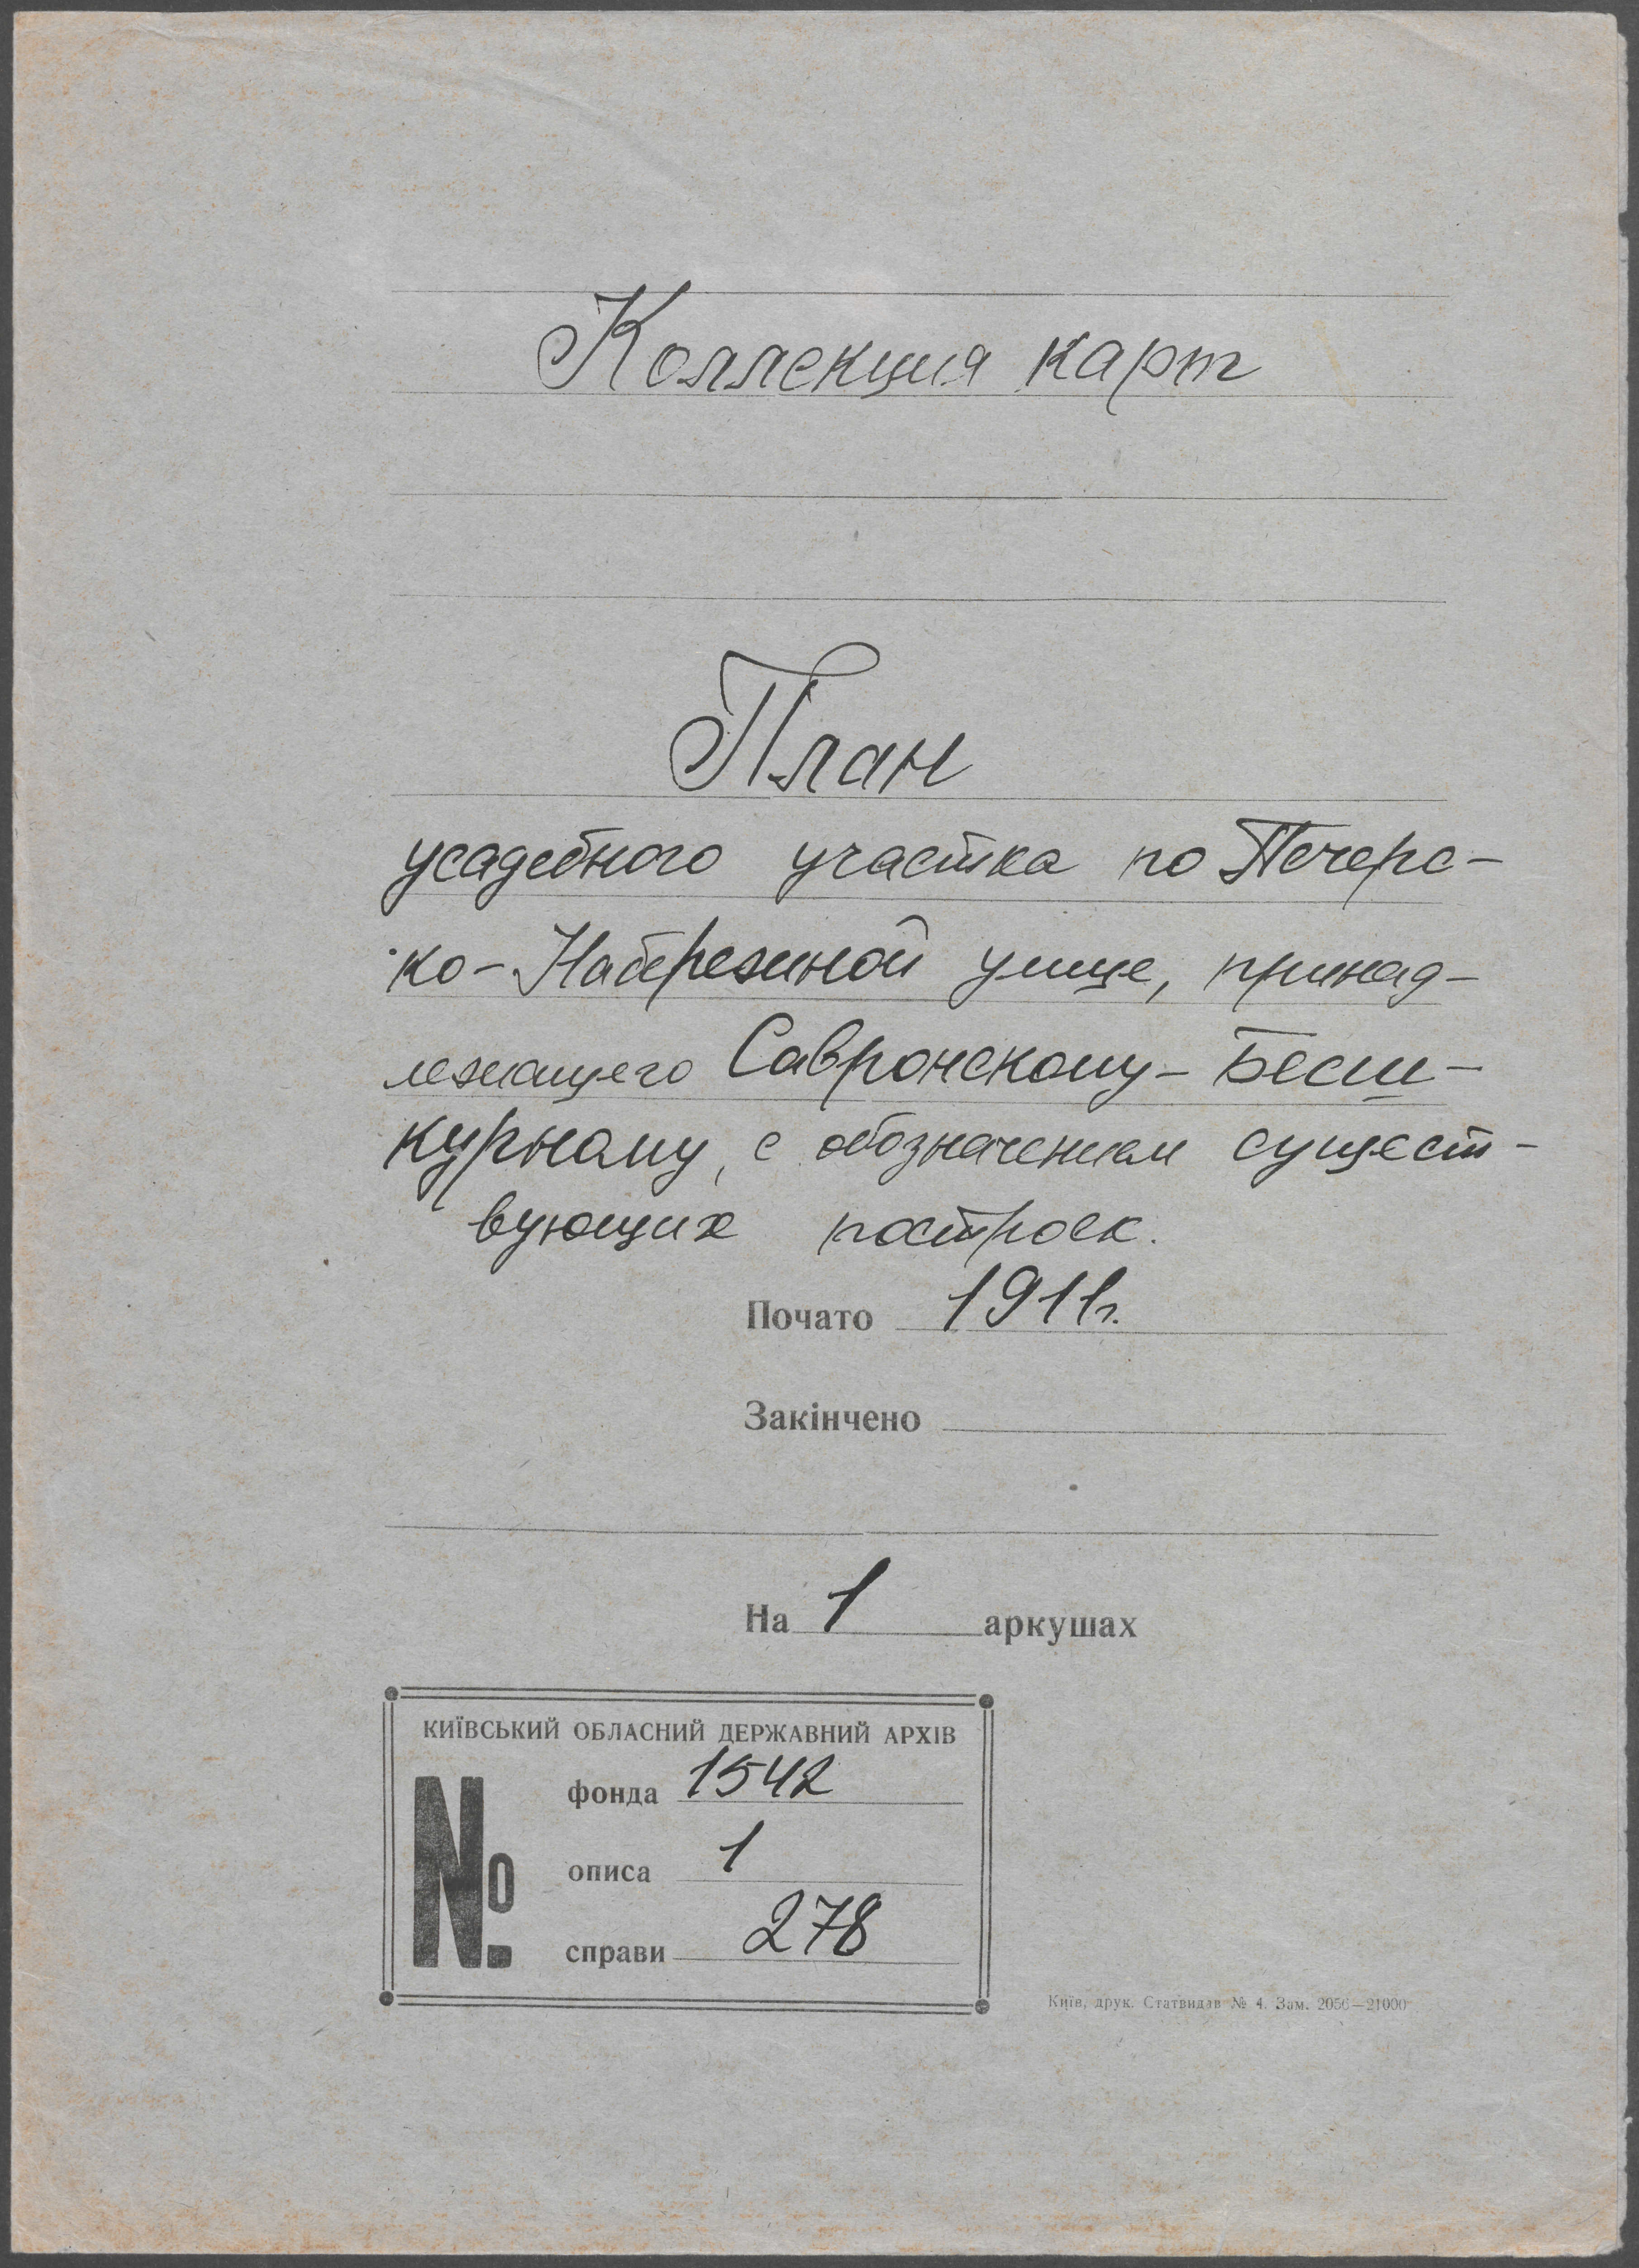 Коллекция карт
План
усадебного участка по Печерс-
ко-Набережной улице, принад-
лежащего Савронскому-Бесш-
курному, с обозначением сущест-
вующих построек.
Почато 1911г.
Закінчено
На 1 аркушах
КИЇВСЬКИЙ ОБЛАСНИЙ ДЕРЖАВНИЙ АРХІВ
№
фонда 1542
описа 1
справи 278
Київ, друк. Статвидав № 4. Зам. 2056—21000